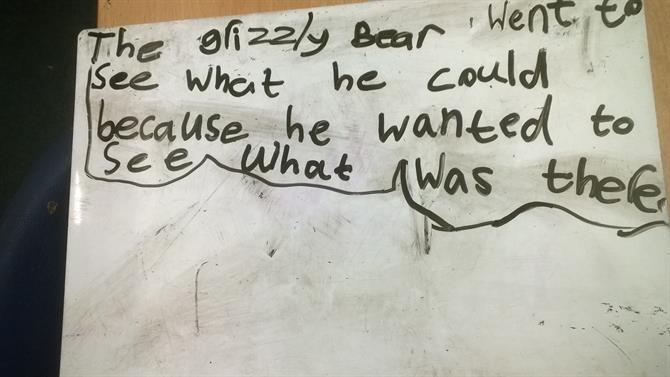 The grizzly Bear Went to
See What he could
because he wanted to
See What Was there